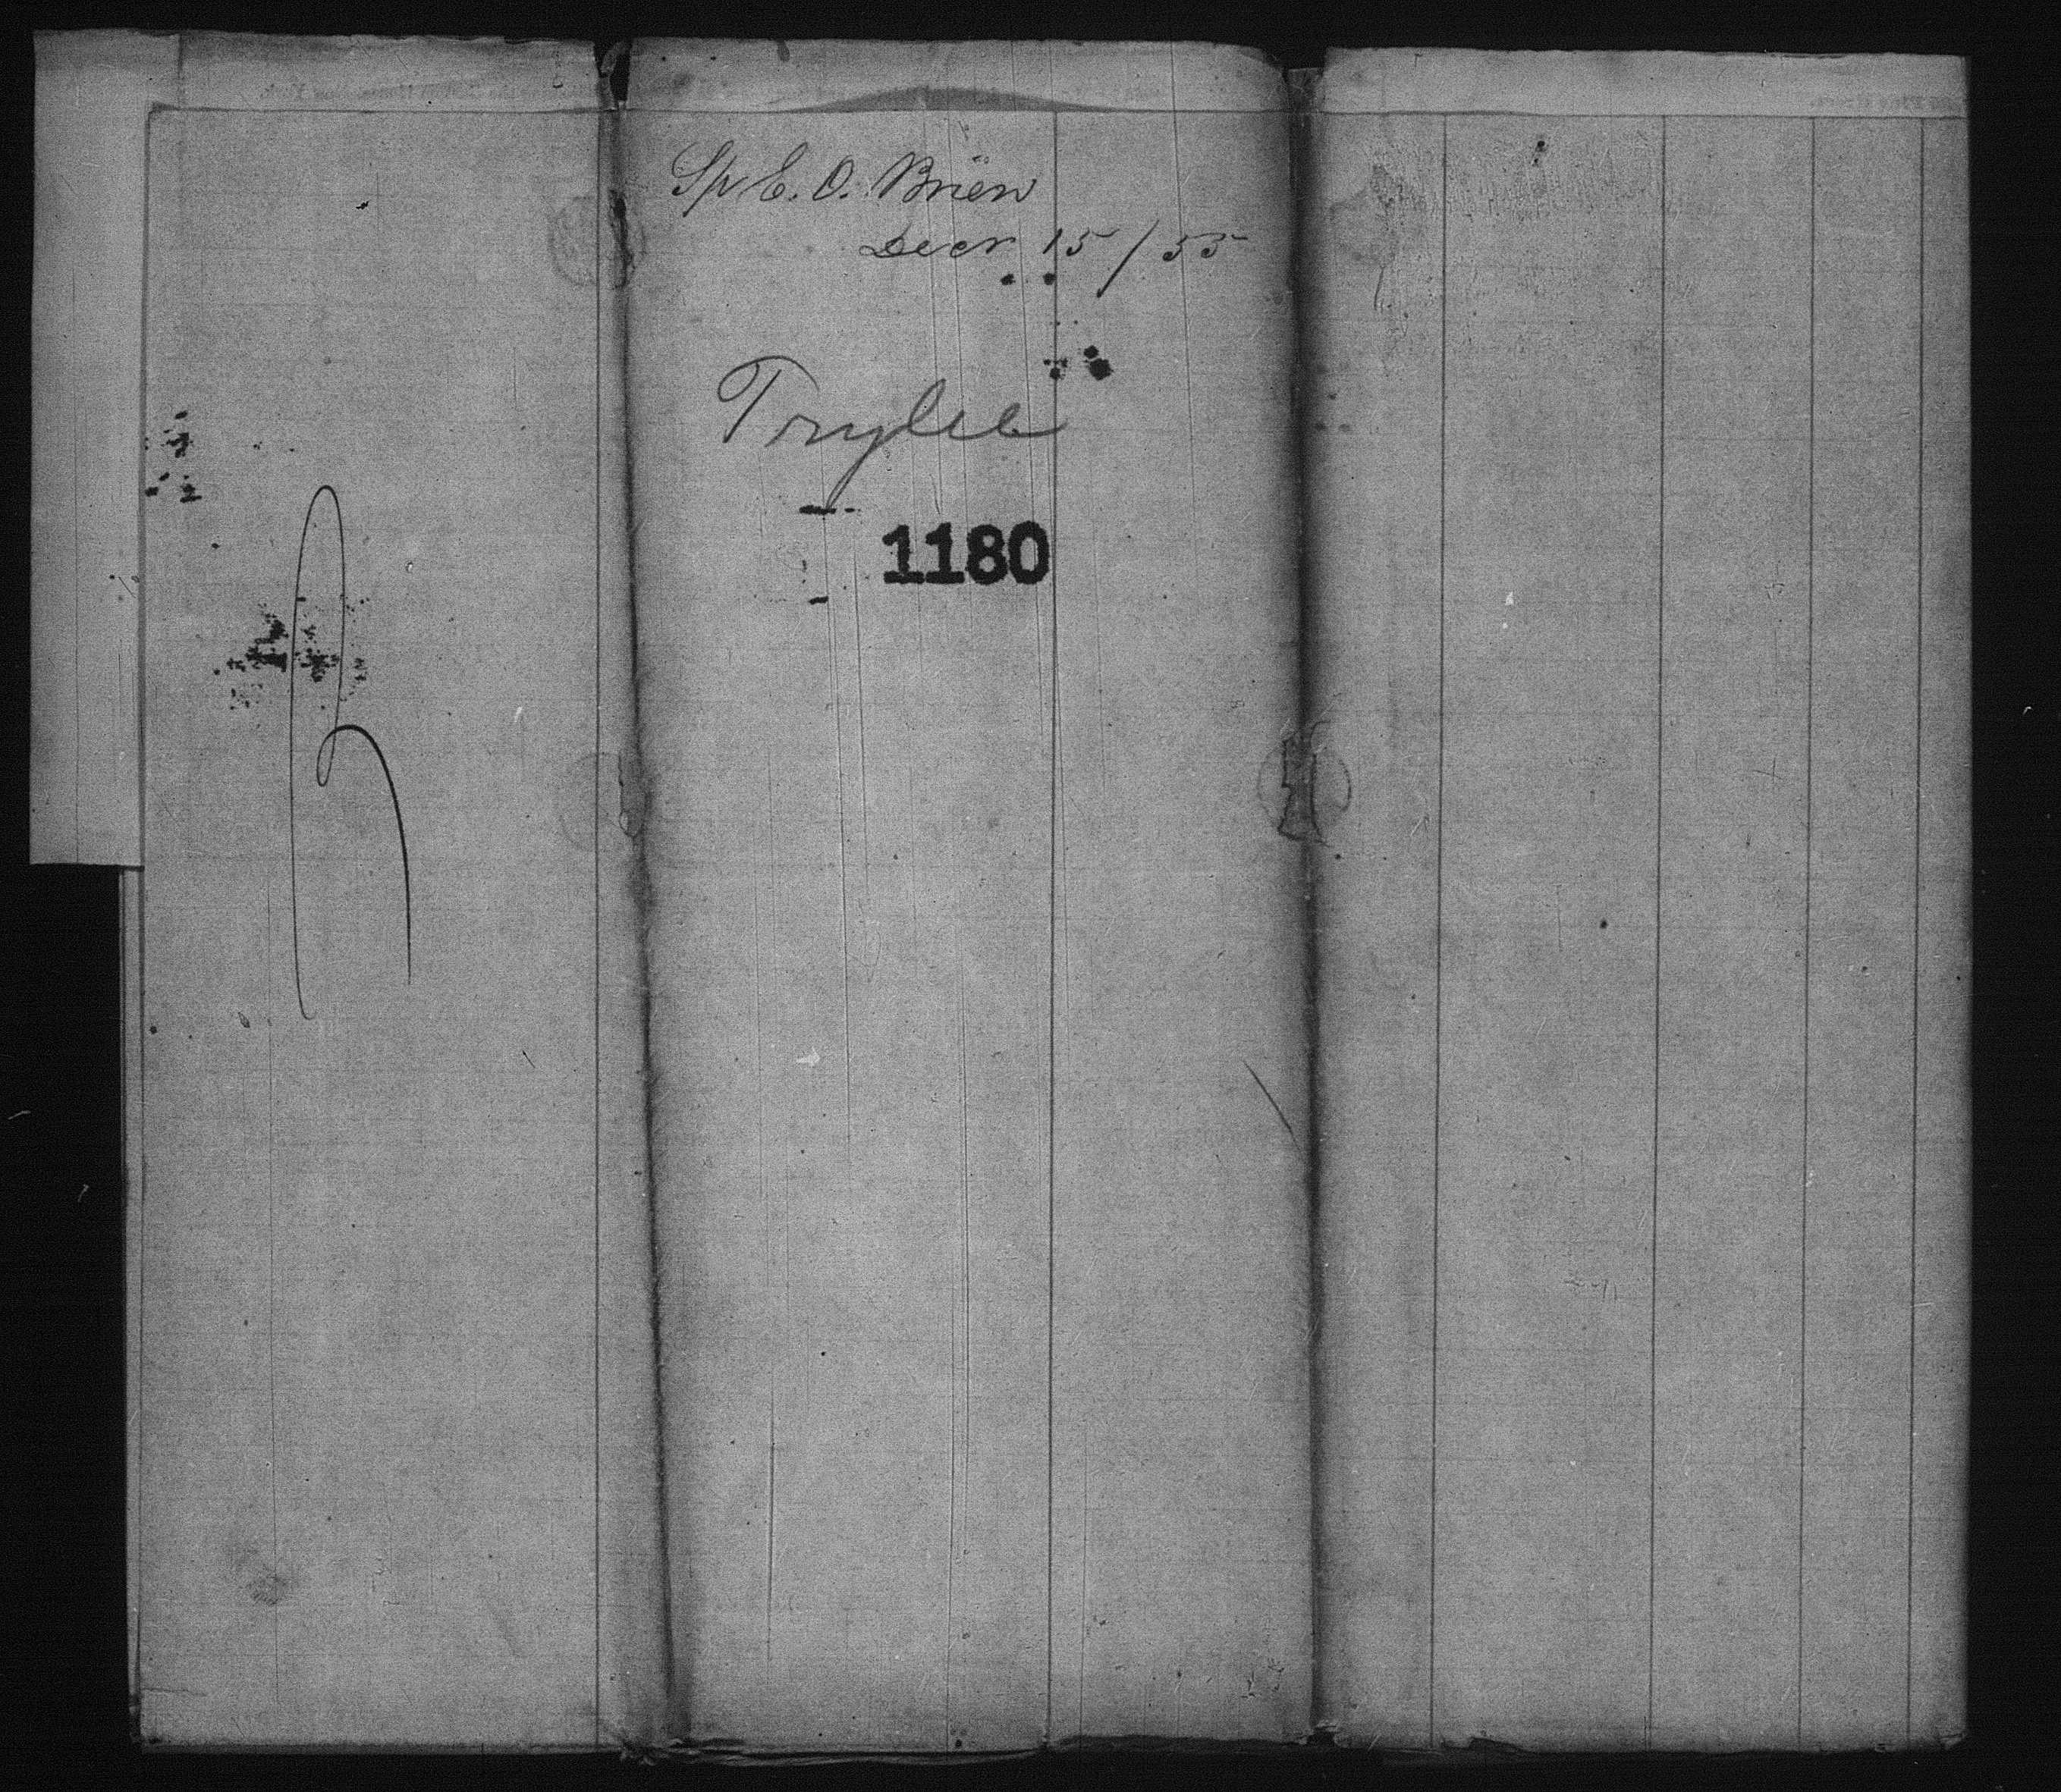 Sp E. O. Brien
Decr 15/55
1180